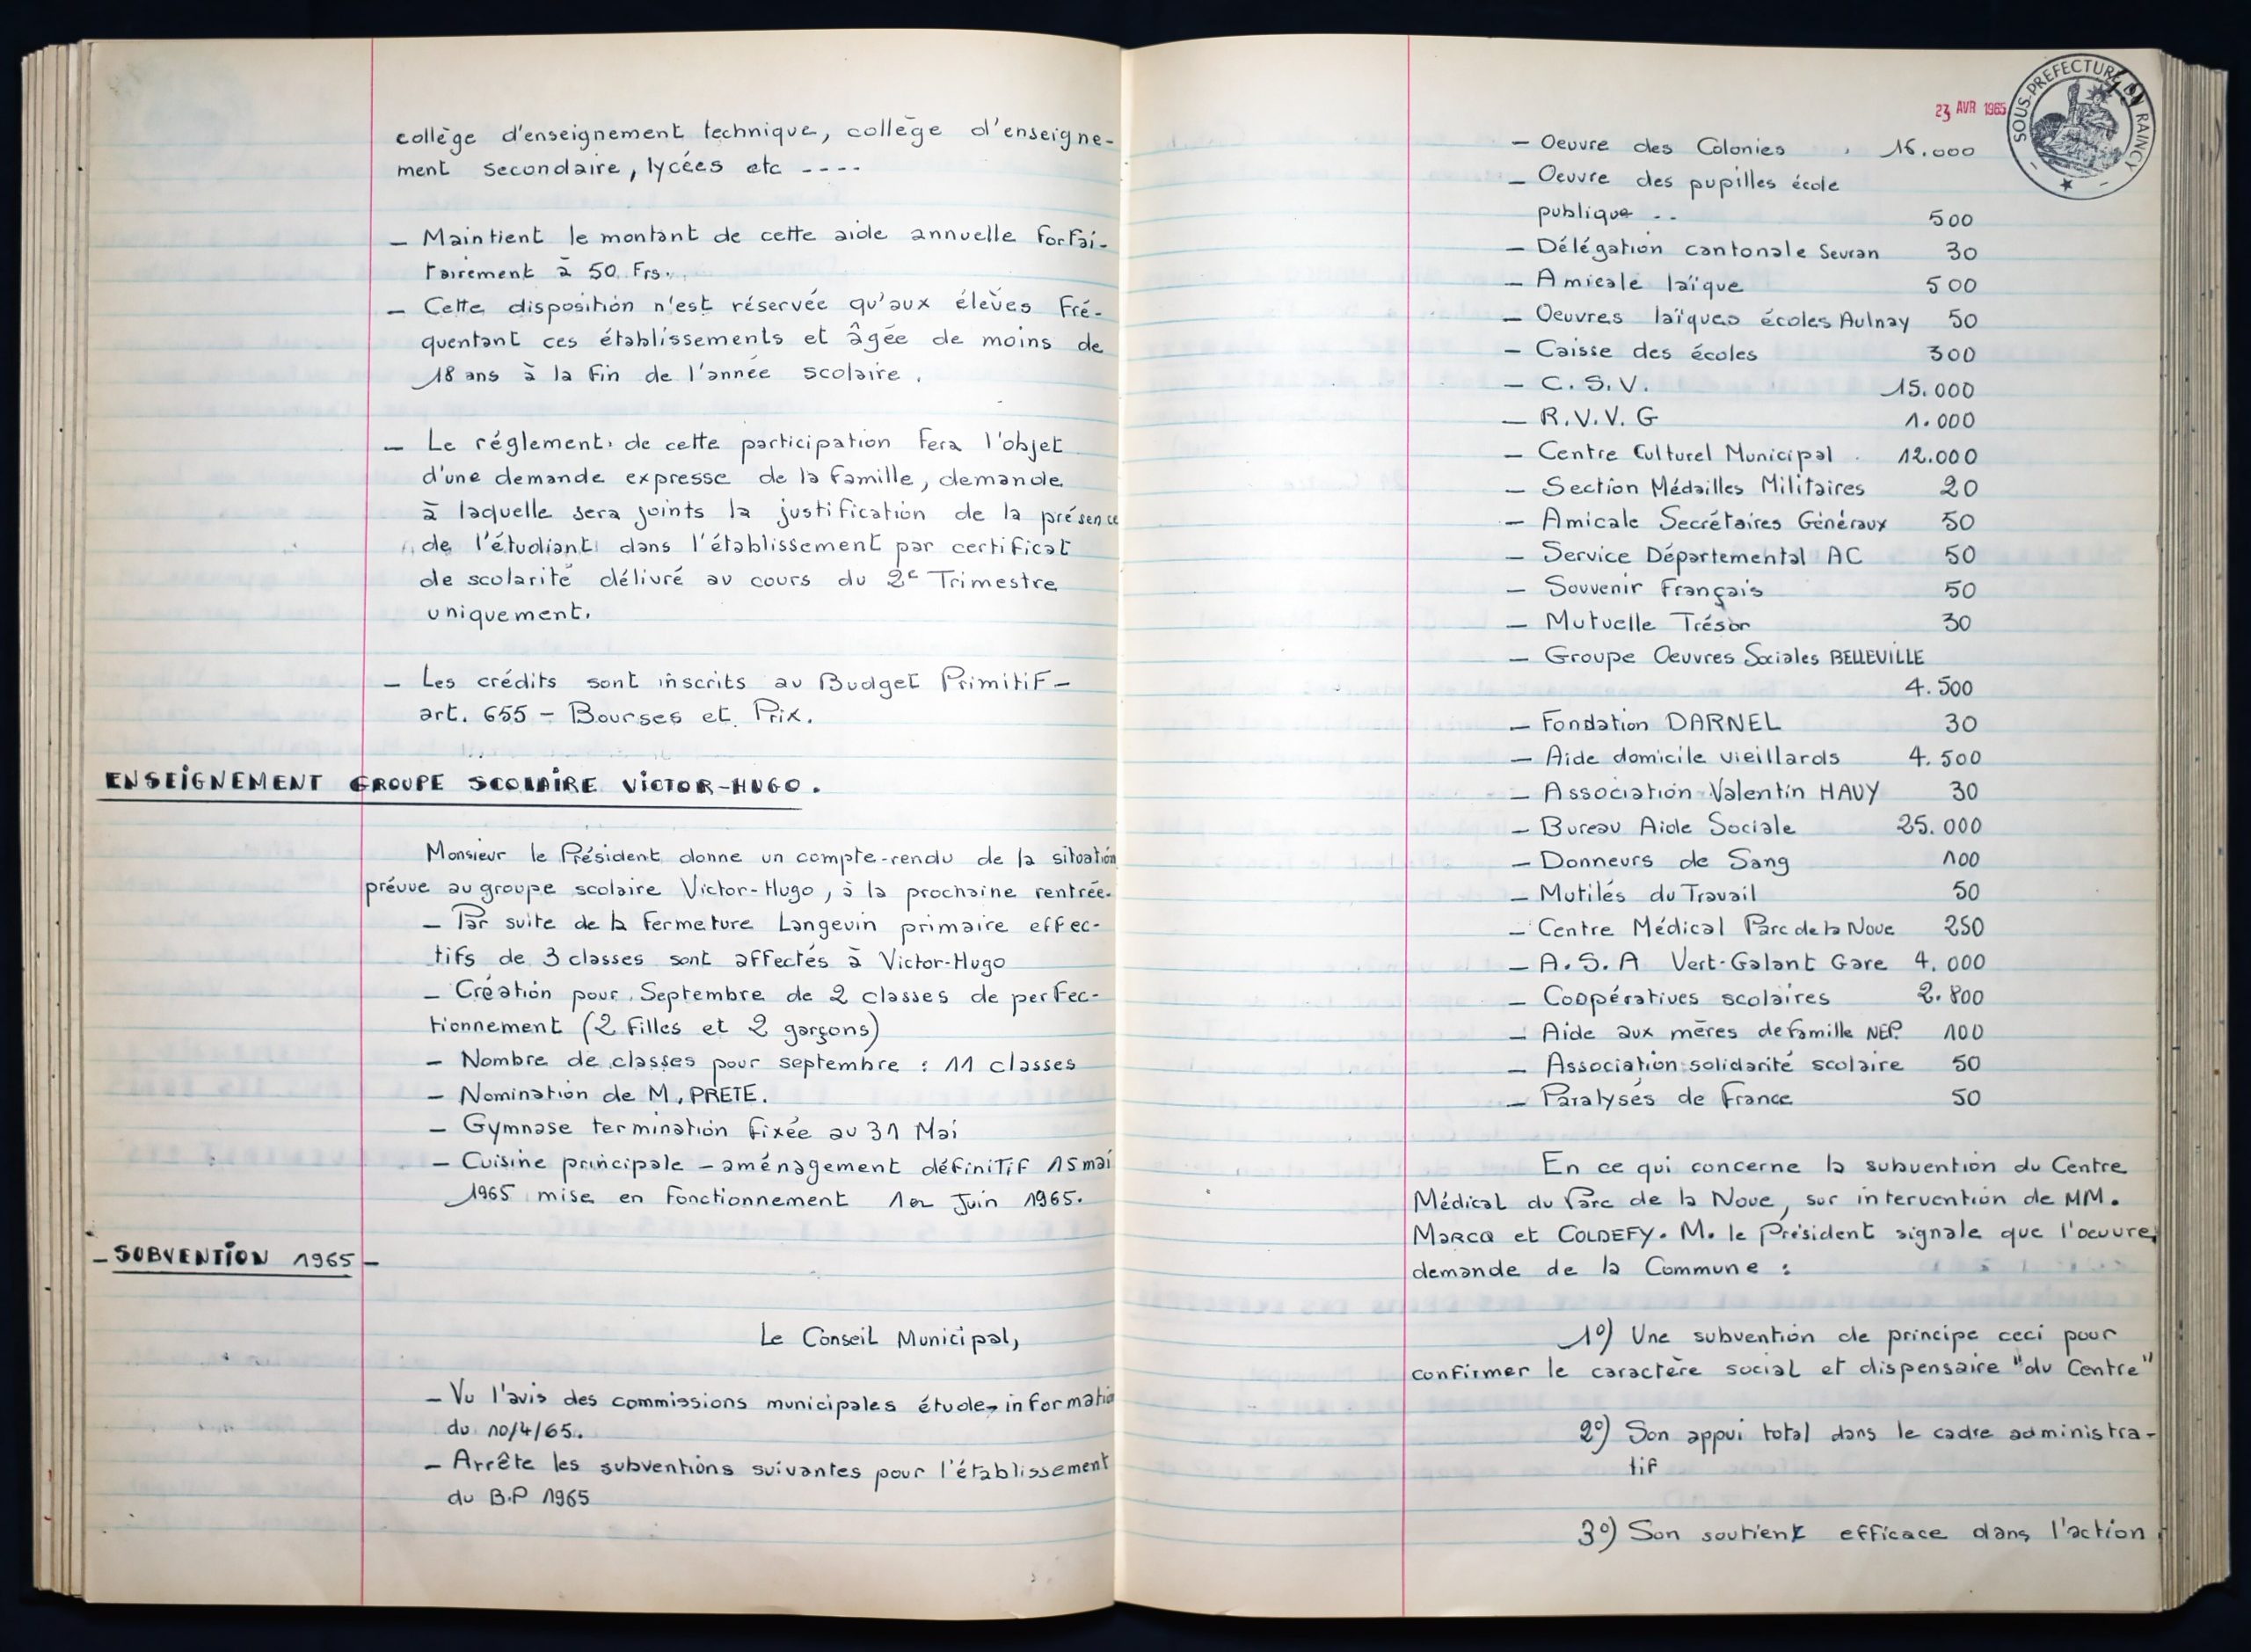 collège d'enseignement technique, collège d'enseigne-
ment secondaire, lycées etc ----
— Maintient le montant de cette aide annuelle forfai-
tairement à 50 Frs.
— Cette disposition n'est réservée qu'aux élèves fré-
quentant ces établissements et âgée de moins de
18 ans à la fin de l'année scolaire.
— Le réglement de cette participation fera l'objet
d'une demande expresse de la famille, demande
à laquelle sera joints la justification de la présence
de l'étudiant dans l'établissement par certificat
de scolarité délivré au cours du 2e Trimestre
uniquement.
— Les crédits sont inscrits au Budget Primitif —
art. 655 — Bourses et Prix.
ENSEIGNEMENT GROUPE SCOLAIRE VICTOR-HUGO.
Monsieur le Président donne un compte-rendu de la situation
prévue au groupe scolaire Victor-Hugo, à la prochaine rentrée.
— Par suite de la fermeture Langevin primaire effec-
tifs de 3 classes sont affectés à Victor-Hugo
— Création pour Septembre de 2 classes de perfec-
tionnement (2 filles et 2 garçons)
— Nombre de classes pour septembre : 11 classes
— Nomination de M. PRETE.
— Gymnase termination fixée au 31 Mai
— Cuisine principale — aménagement définitif 15 mai
1965 mise en fonctionnement 1er Juin 1965.
— SUBVENTION 1965 —
Le Conseil Municipal,
— Vu l'avis des commissions municipales étude, informatio
du 10/4/65.
— Arrête les subventions suivantes pour l'établissement
du B.P 1965
23 AVR 1965
SOUS-PREFECTURE DU RAINCY
— Oeuvre des Colonies 16.000
— Oeuvre des pupilles école
publique .. 500
— Délégation cantonale Sevran 30
— Amicale laïque 500
— Oeuvres laïques écoles Aulnay 50
— Caisse des écoles 300
— C.S.V. 15.000
— R.V.V.G 1.000
— Centre Culturel Municipal 12.000
— Section Médailles Militaires 20
— Amicale Secrétaires Généraux 50
— Service Départemental AC 50
— Souvenir Français 50
— Mutuelle Trésor 30
— Groupe Oeuvres Sociales BELLEVILLE
4.500
— Fondation DARNEL 30
— Aide domicile vieillards 4.500
— Association Valentin HAUY 30
— Bureau Aide Sociale 25.000
— Donneurs de Sang 100
— Mutilés du Travail 50
— Centre Médical Parc de la Noue 250
— A.S.A Vert-Galant Gare 4.000
— Coopératives scolaires 2.800
— Aide aux mères de famille NEP. 100
— Association solidarité scolaire 50
— Paralysés de France 50
En ce qui concerne la subvention du Centre
Médical du Parc de la Noue, sur intervention de MM.
MARCQ et COLDEFY. M. le Président signale que l'oeuvre
demande de la Commune :
1°) Une subvention de principe ceci pour
confirmer le caractère social et dispensaire "du Centre"
2°) Son appui total dans le cadre administra-
tif
3°) Son soutient efficace dans l'action